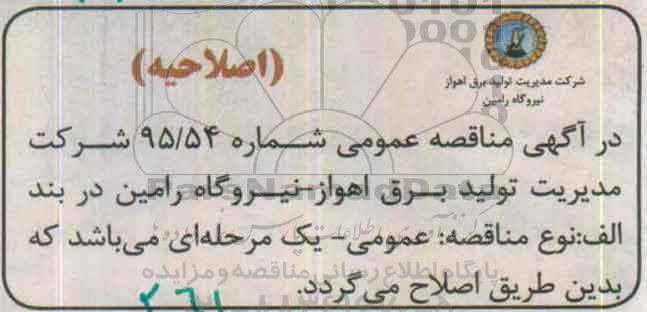 (اصلاحیه)
شرکت مدیریت تولید برق اهواز
نیروگاه رامین
در آگهی مناقصه عمومی شماره ۹۵/۵۴ شرکت
مدیریت تولید برق اهواز-نیروگاه رامین در بند
الف:نوع مناقصه: عمومی- یک مرحله‌ای می‌باشد که
بدین طریق اصلاح می‌گردد.
پایگاه اطلاع رسانی مناقصه و مزایده